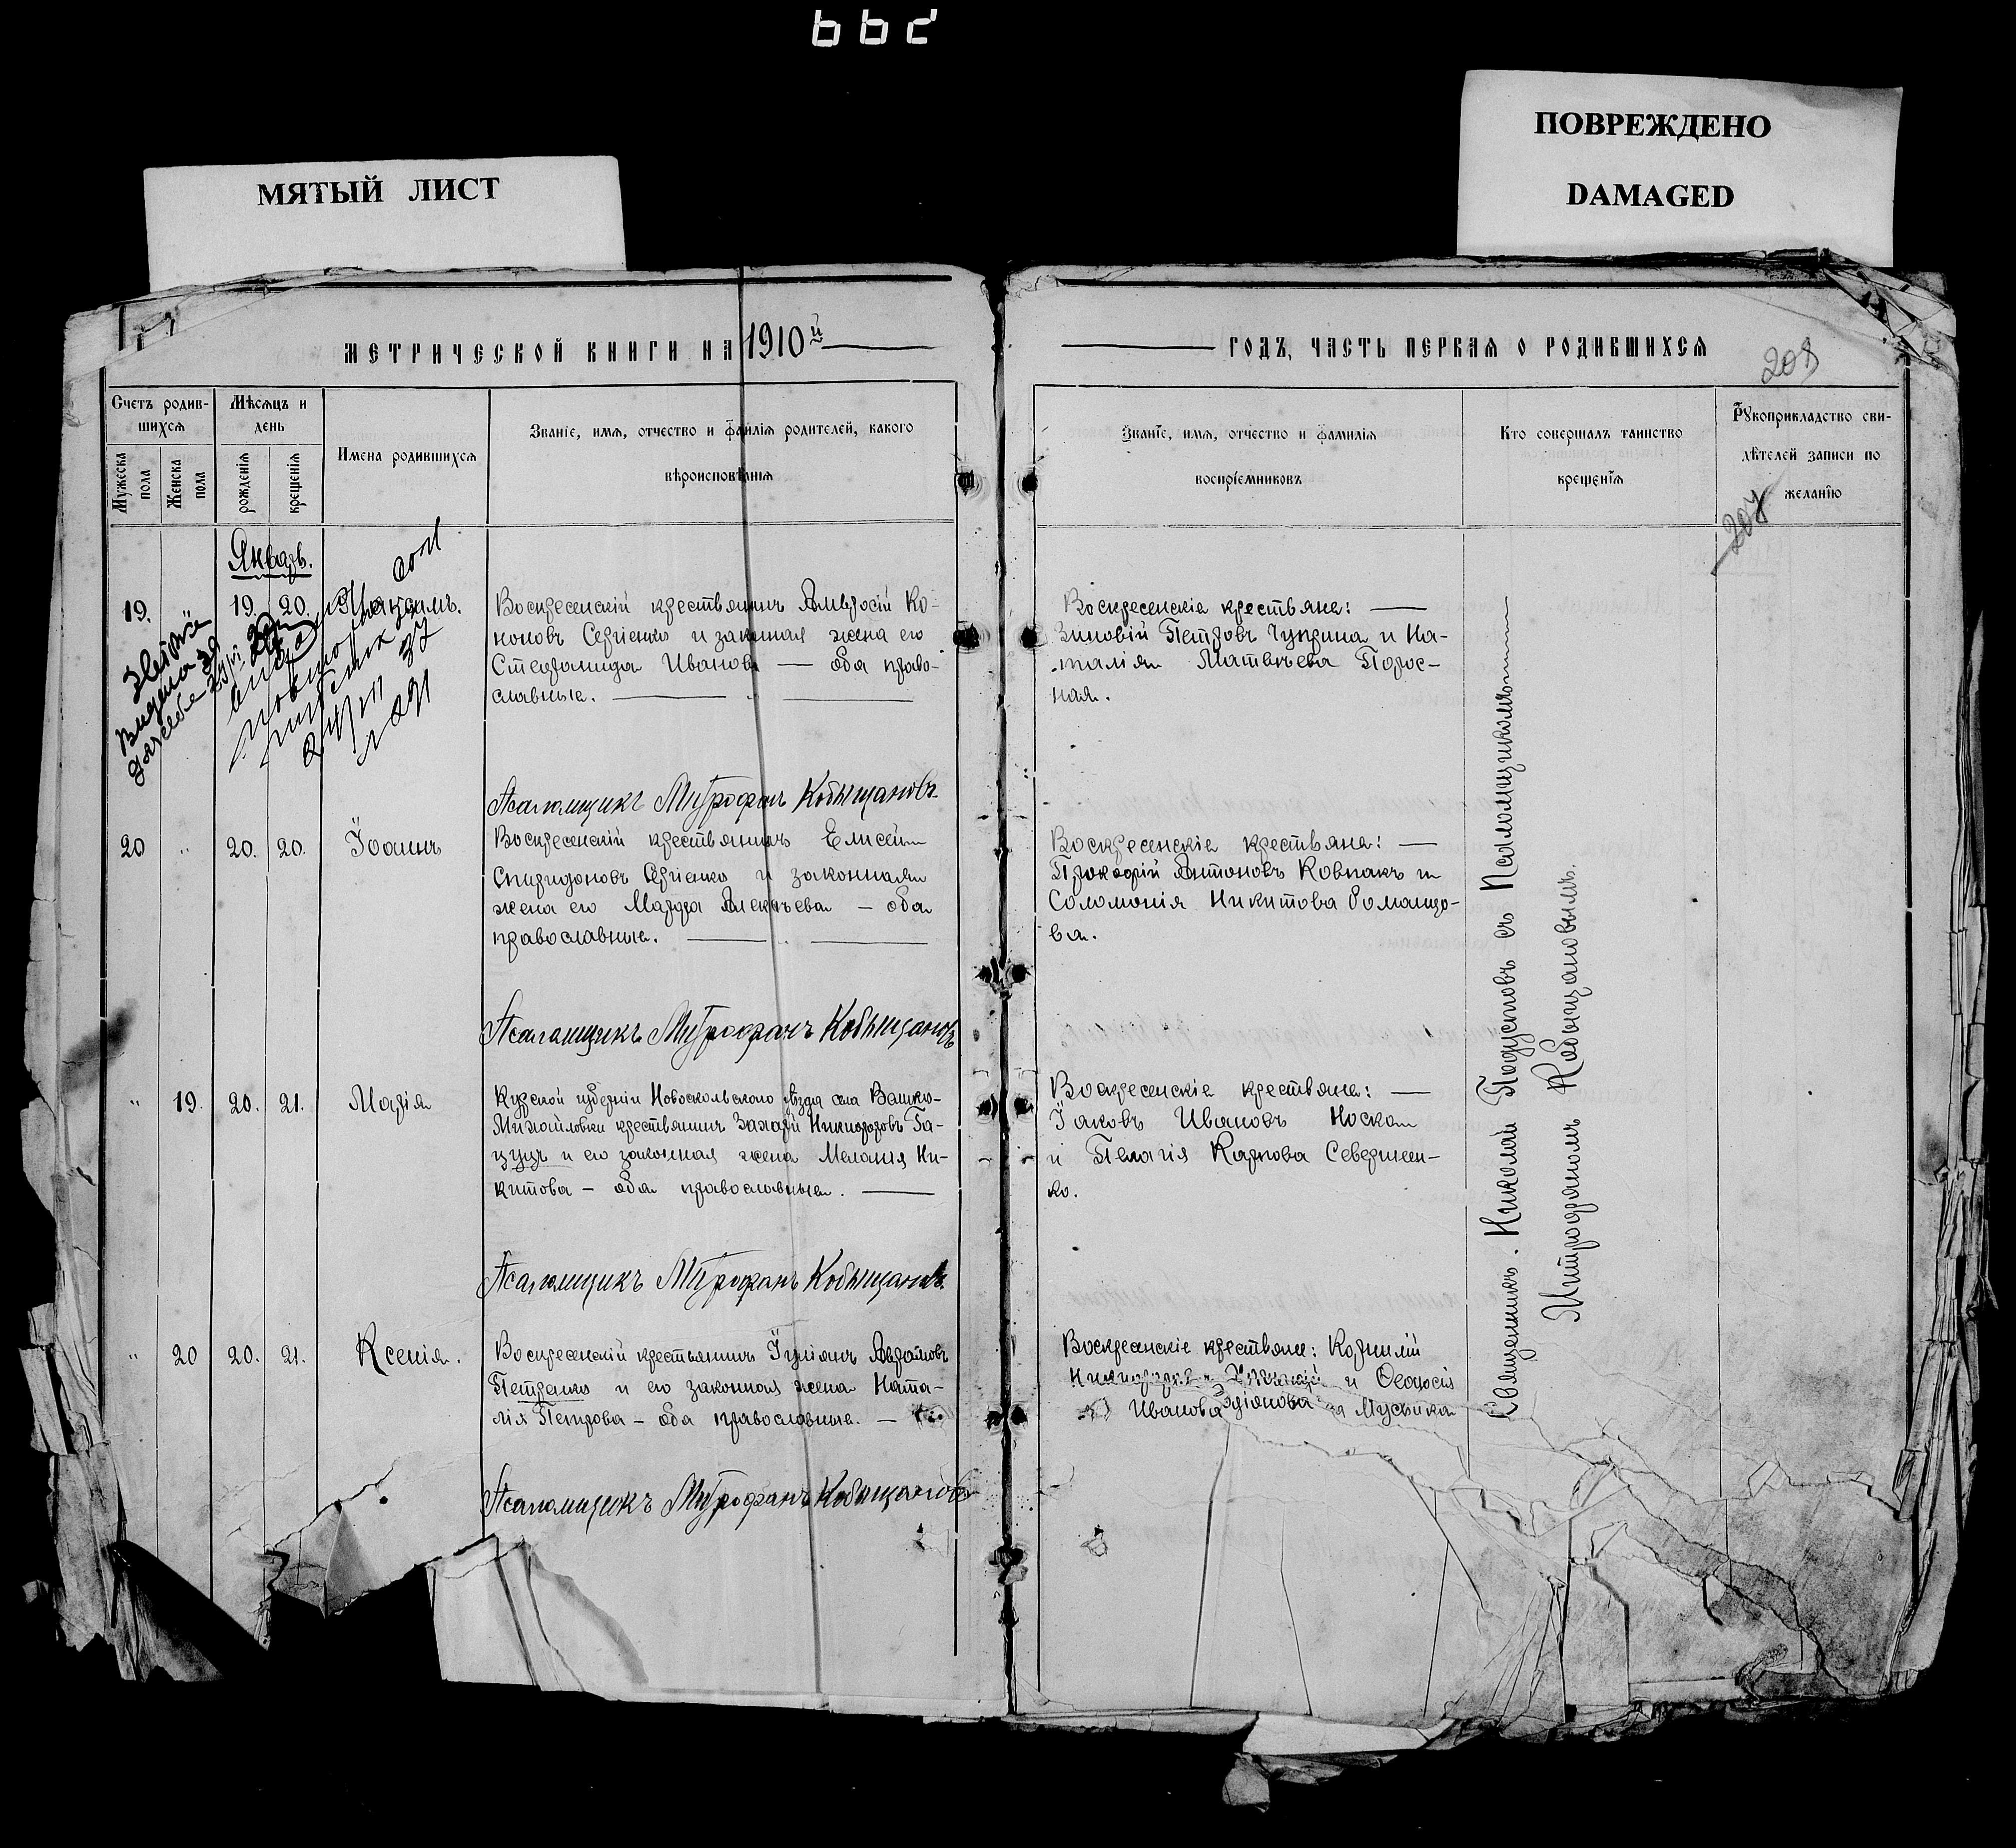 662
МЯТЫЙ ЛИСТ
ПОВРЕЖДЕНО
DAMAGED
МЕТРИЧЕСКОЙ КНИГИ НА 1910й
ГОДЪ, ЧАСТЬ ПЕРВАЯ О РОДИВШИХСЯ
208
207
Счетъ родив-
шихся
Мужеска
пола
Женска
пола
Мѣсяцъ и
день
рожденія
крещенія
Имена родившихся
Званіе, имя, отчество и фамилія родителей, какого
вѣроисповѣданія
Званіе, имя, отчество и фамилія
воспріемниковъ
Кто совершалъ таинство
крещенія
Рукоприкладство сви-
дѣтелей записи по
желанію
Январь.
19. „ 19. 20.
Воскресенскій крестьянинъ Амвросій Ко-
ноновъ Сергіенко и законная жена его
Стефанида Иванова — оба право-
славные.
Воскресенскіе крестьяне: —
Зиновій Петровъ Чуприна и На-
талія Матвѣева Порос-
ная.
Псаломщикъ Митрофанъ Кобыщановъ
20 „ 20. 20. Іоаннъ
Воскресенскій крестьянинъ Елисей
Спиридоновъ Сергіенко и законная
жена его Марфа Алексѣева — оба
православные.
Воскресенскіе крестьяне: —
Прокофій Антоновъ Ковпакъ и
Соломонія Никитова
ва.
Псаломщикъ Митрофанъ Кобыщановъ
„ 19. 20. 21. Марія
Курской губерніи Новооскольскаго уѣзда села
Михайловки крестьянинъ Захарій Никифоровъ Га-
цуцъ и его законная жена Меланія Ни-
китова — оба православные. —
Воскресенскіе крестьяне: —
Іаковъ Ивановъ Носкан
и Пелагія Карпова Севериен-
ко.
Псаломщикъ Митрофанъ Кобыщановъ
„ 20 20. 21. Ксенія.
Воскресенскій крестьянинъ Іуліанъ Аврамовъ
Петренко и его законная жена Ната-
лія Петрова — оба православные. —
Воскресенскіе крестьяне: Корнилій
и Ѳеодосія
Иванова Мусѣйка
Псаломщикъ Митрофанъ Кобыщановъ
Священникъ Николай Подустовъ съ Псаломщикомъ
Митрофаномъ Кобыщановымъ.